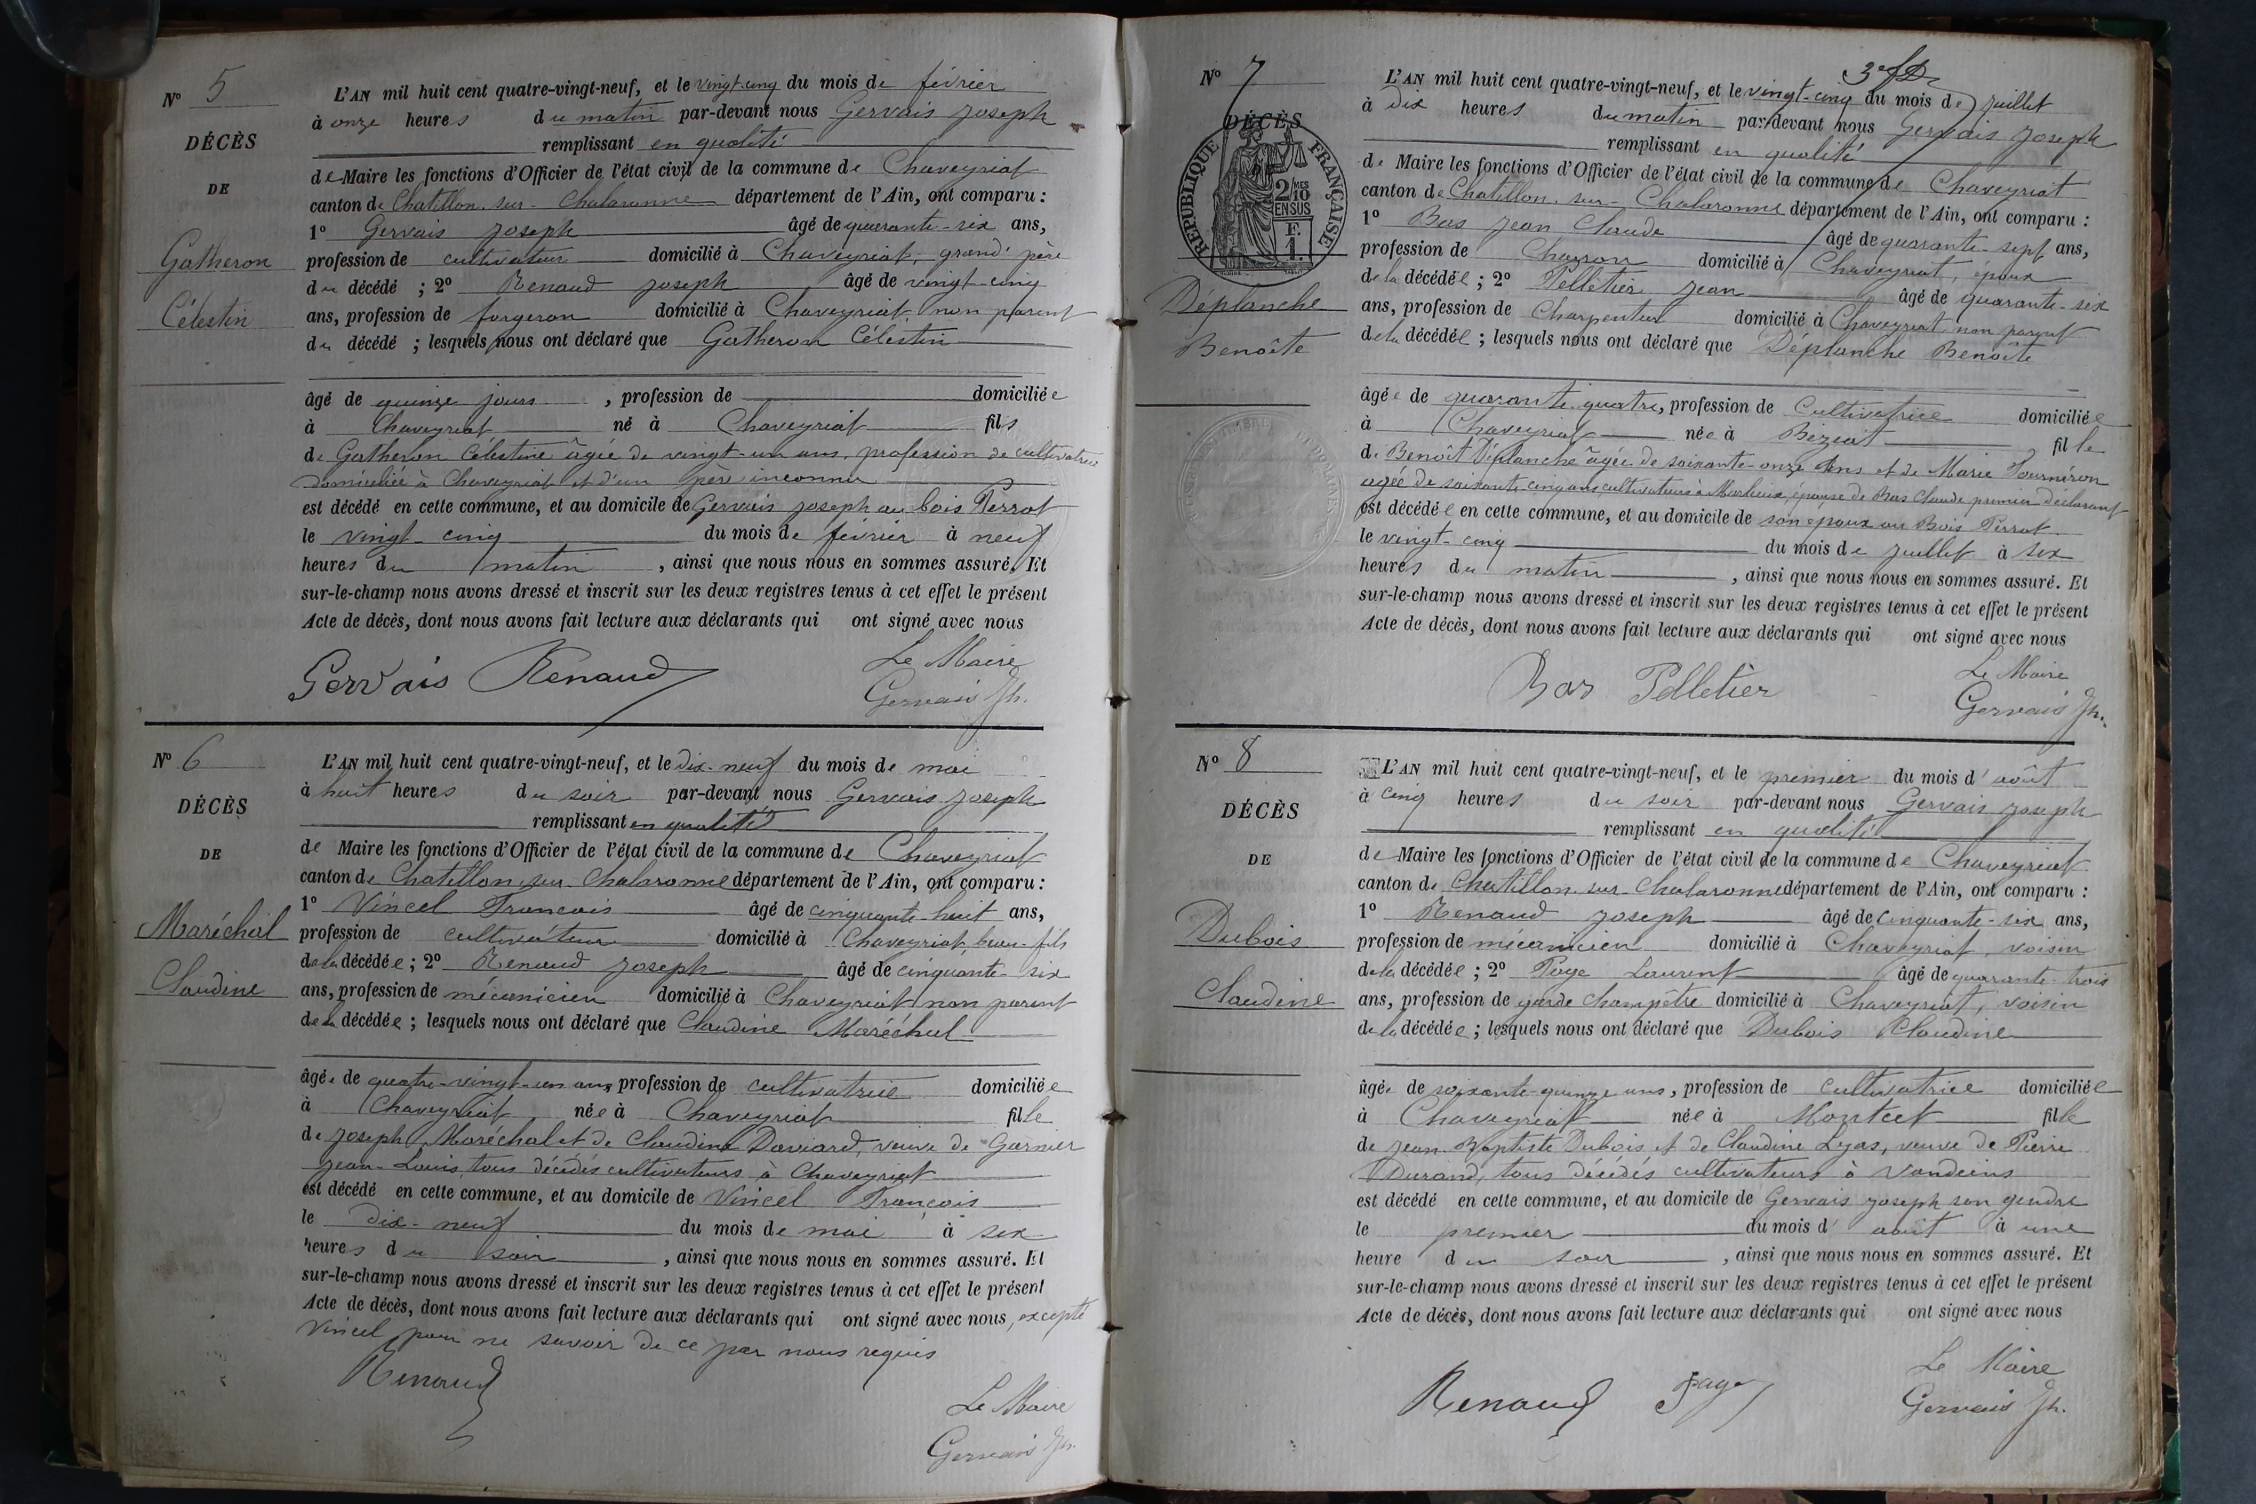 N° 5
DÉCÈS
DE
Gatheron
Célestin
L'AN mil huit cent quatre-vingt-neuf, et le vingt-cinq du mois de février
à onze heures du matin par-devant nous Gervais Joseph
remplissant en qualité
de Maire les fonctions d'Officier de l'état civil de la commune de Chaveyriat
canton de Chatillon-sur-Chalaronne département de l'Ain, ont comparu :
1° Gervais Joseph âgé de quarante-six ans,
profession de cultivateur domicilié à Chaveyriat, grand'père
du décédé ; 2° Renaud Joseph âgé de vingt-cinq
ans, profession de forgeron domicilié à Chaveyriat non parent
du décédé ; lesquels nous ont déclaré que Gatheron Célestin
âgé de quinze jours , profession de domiciliée
à Chaveyriat né à Chaveyriat fils
de Gatheron Célestine âgée de vingt-un ans, profession de cultivatrice
domiciliée à Chaveyriat et d'un père inconnu
est décédé en cette commune, et au domicile de Gervais Joseph au bois Perrot
le vingt-cinq du mois de février à neuf
heures du matin , ainsi que nous nous en sommes assuré. Et
sur-le-champ nous avons dressé et inscrit sur les deux registres tenus à cet effet le présent
Acte de décès, dont nous avons fait lecture aux déclarants qui ont signé avec nous
Gervais Renaud
Le Maire
Gervais Jh.
N° 6
DÉCÈS
DE
Maréchal
Claudine
L'AN mil huit cent quatre-vingt-neuf, et le dix-neuf du mois de mai
à huit heures du soir par-devant nous Gervais Joseph
remplissant en qualité
de Maire les fonctions d'Officier de l'état civil de la commune de Chaveyriat
canton de Chatillon-sur-Chalaronne département de l'Ain, ont comparu :
1° Vincel Francois âgé de cinquante-huit ans,
profession de cultivateur domicilié à Chaveyriat, beau-fils
de la décédée ; 2° Renaud Joseph âgé de cinquante-six
ans, profession de mécanicien domicilié à Chaveyriat non parent
de la décédée ; lesquels nous ont déclaré que Claudine Maréchal
âgée de quatre-vingt-un ans, profession de cultivatrice domiciliée
à Chaveyriat née à Chaveyriat fille
de Joseph Maréchal et de Claudine Daviard, veuve de Garnier
Jean-Louis tous décédés cultivateurs à Chaveyriat
est décédé en cette commune, et au domicile de Vincel Francois
le dix-neuf du mois de mai à six
heures du soir , ainsi que nous nous en sommes assuré. Et
sur-le-champ nous avons dressé et inscrit sur les deux registres tenus à cet effet le présent
Acte de décès, dont nous avons fait lecture aux déclarants qui ont signé avec nous, excepté
Vincel pour ne savoir de ce par nous requis
Renaud
Le Maire
Gervais Jh.
N° 7
DÉCÈS
RÉPUBLIQUE FRANÇAISE
2/10
MES
EN SUS
F.
1.
Déplanche
Benoîte
L'AN mil huit cent quatre-vingt-neuf, et le vingt-cinq du mois de juillet
à dix heures du matin par-devant nous Gervais Joseph
remplissant en qualité
de Maire les fonctions d'Officier de l'état civil de la commune de Chaveyriat
canton de Chatillon-sur-Chalaronne département de l'Ain, ont comparu :
1° Bas Jean Claude âgé de quarante-sept ans,
profession de Charron domicilié à Chaveyriat, époux
de la décédée ; 2° Pelletier Jean âgé de quarante-six
ans, profession de Charpentier domicilié à Chaveyriat non parent
de la décédée ; lesquels nous ont déclaré que Déplanche Benoîte
âgée de quarante-quatre, profession de Cultivatrice domiciliée
à Chaveyriat née à Béziat fille
de Benoît Déplanche âgée de soixante-onze ans et de Marie Fourniéron
agée de soixante-cinq ans cultivateurs à Marlieux, épouse de Bas Claude premier déclarant
est décédée en cette commune, et au domicile de son époux au Bois Perrot
le vingt-cinq du mois de juillet à six
heures du matin , ainsi que nous nous en sommes assuré. Et
sur-le-champ nous avons dressé et inscrit sur les deux registres tenus à cet effet le présent
Acte de décès, dont nous avons fait lecture aux déclarants qui ont signé avec nous
Bas Pelletier
Le Maire
Gervais Jh.
N° 8
DÉCÈS
DE
Dubois
Claudine
L'AN mil huit cent quatre-vingt-neuf, et le premier du mois d'août
à cinq heures du soir par-devant nous Gervais Joseph
remplissant en qualité
de Maire les fonctions d'Officier de l'état civil de la commune de Chaveyriat
canton de Chatillon-sur-Chalaronne département de l'Ain, ont comparu :
1° Renaud Joseph âgé de cinquante-six ans,
profession de mécanicien domicilié à Chaveyriat, voisin
de la décédée ; 2° Page Laurent âgé de quarante-trois
ans, profession de garde champêtre domicilié à Chaveyriat, voisin
de la décédée ; lesquels nous ont déclaré que Dubois Claudine
âgée de soixante-quinze ans, profession de cultivatrice domiciliée
à Chaveyriat née à Montcet fille
de Jean Baptiste Dubois et de Claudine Lyas, veuve de Pierre
Durand, tous décédés cultivateurs à Vandeins
est décédé en cette commune, et au domicile de Gervais Joseph son gendre
le premier du mois d'août à une
heure du soir , ainsi que nous nous en sommes assuré. Et
sur-le-champ nous avons dressé et inscrit sur les deux registres tenus à cet effet le présent
Acte de décès, dont nous avons fait lecture aux déclarants qui ont signé avec nous
Renaud Page
Le Maire
Gervais Jh.